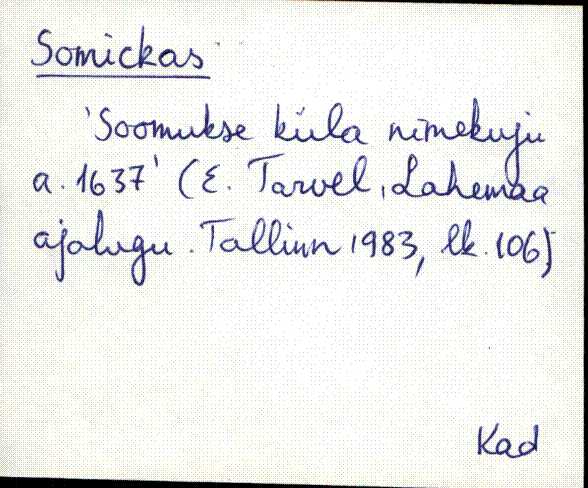 Somickas
'Soomukse küla nimekuju
a. 1637' (E. Tarvel, Lahemaa
ajalugu. Tallinn 1983, lk. 106)
Kad